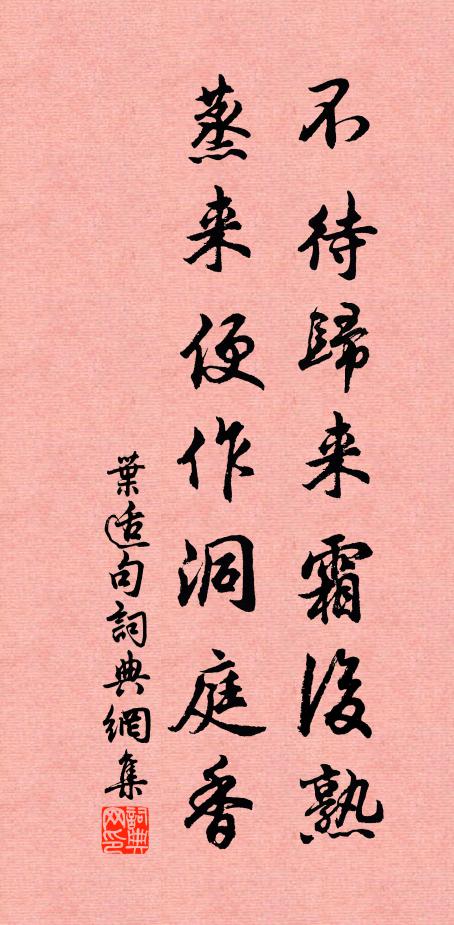 不待歸来霜後熟
蒸来便作洞庭香
葉适句詞典網集
詞典网印